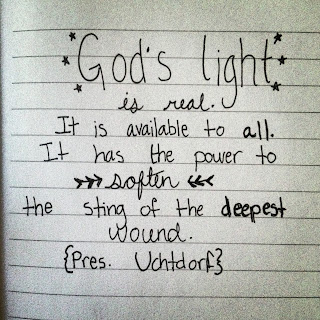 God's light
is real.
It is available to all.
It has the power to
soften
the sting of the deepest
wound.
{Pres. Uchtdorf}